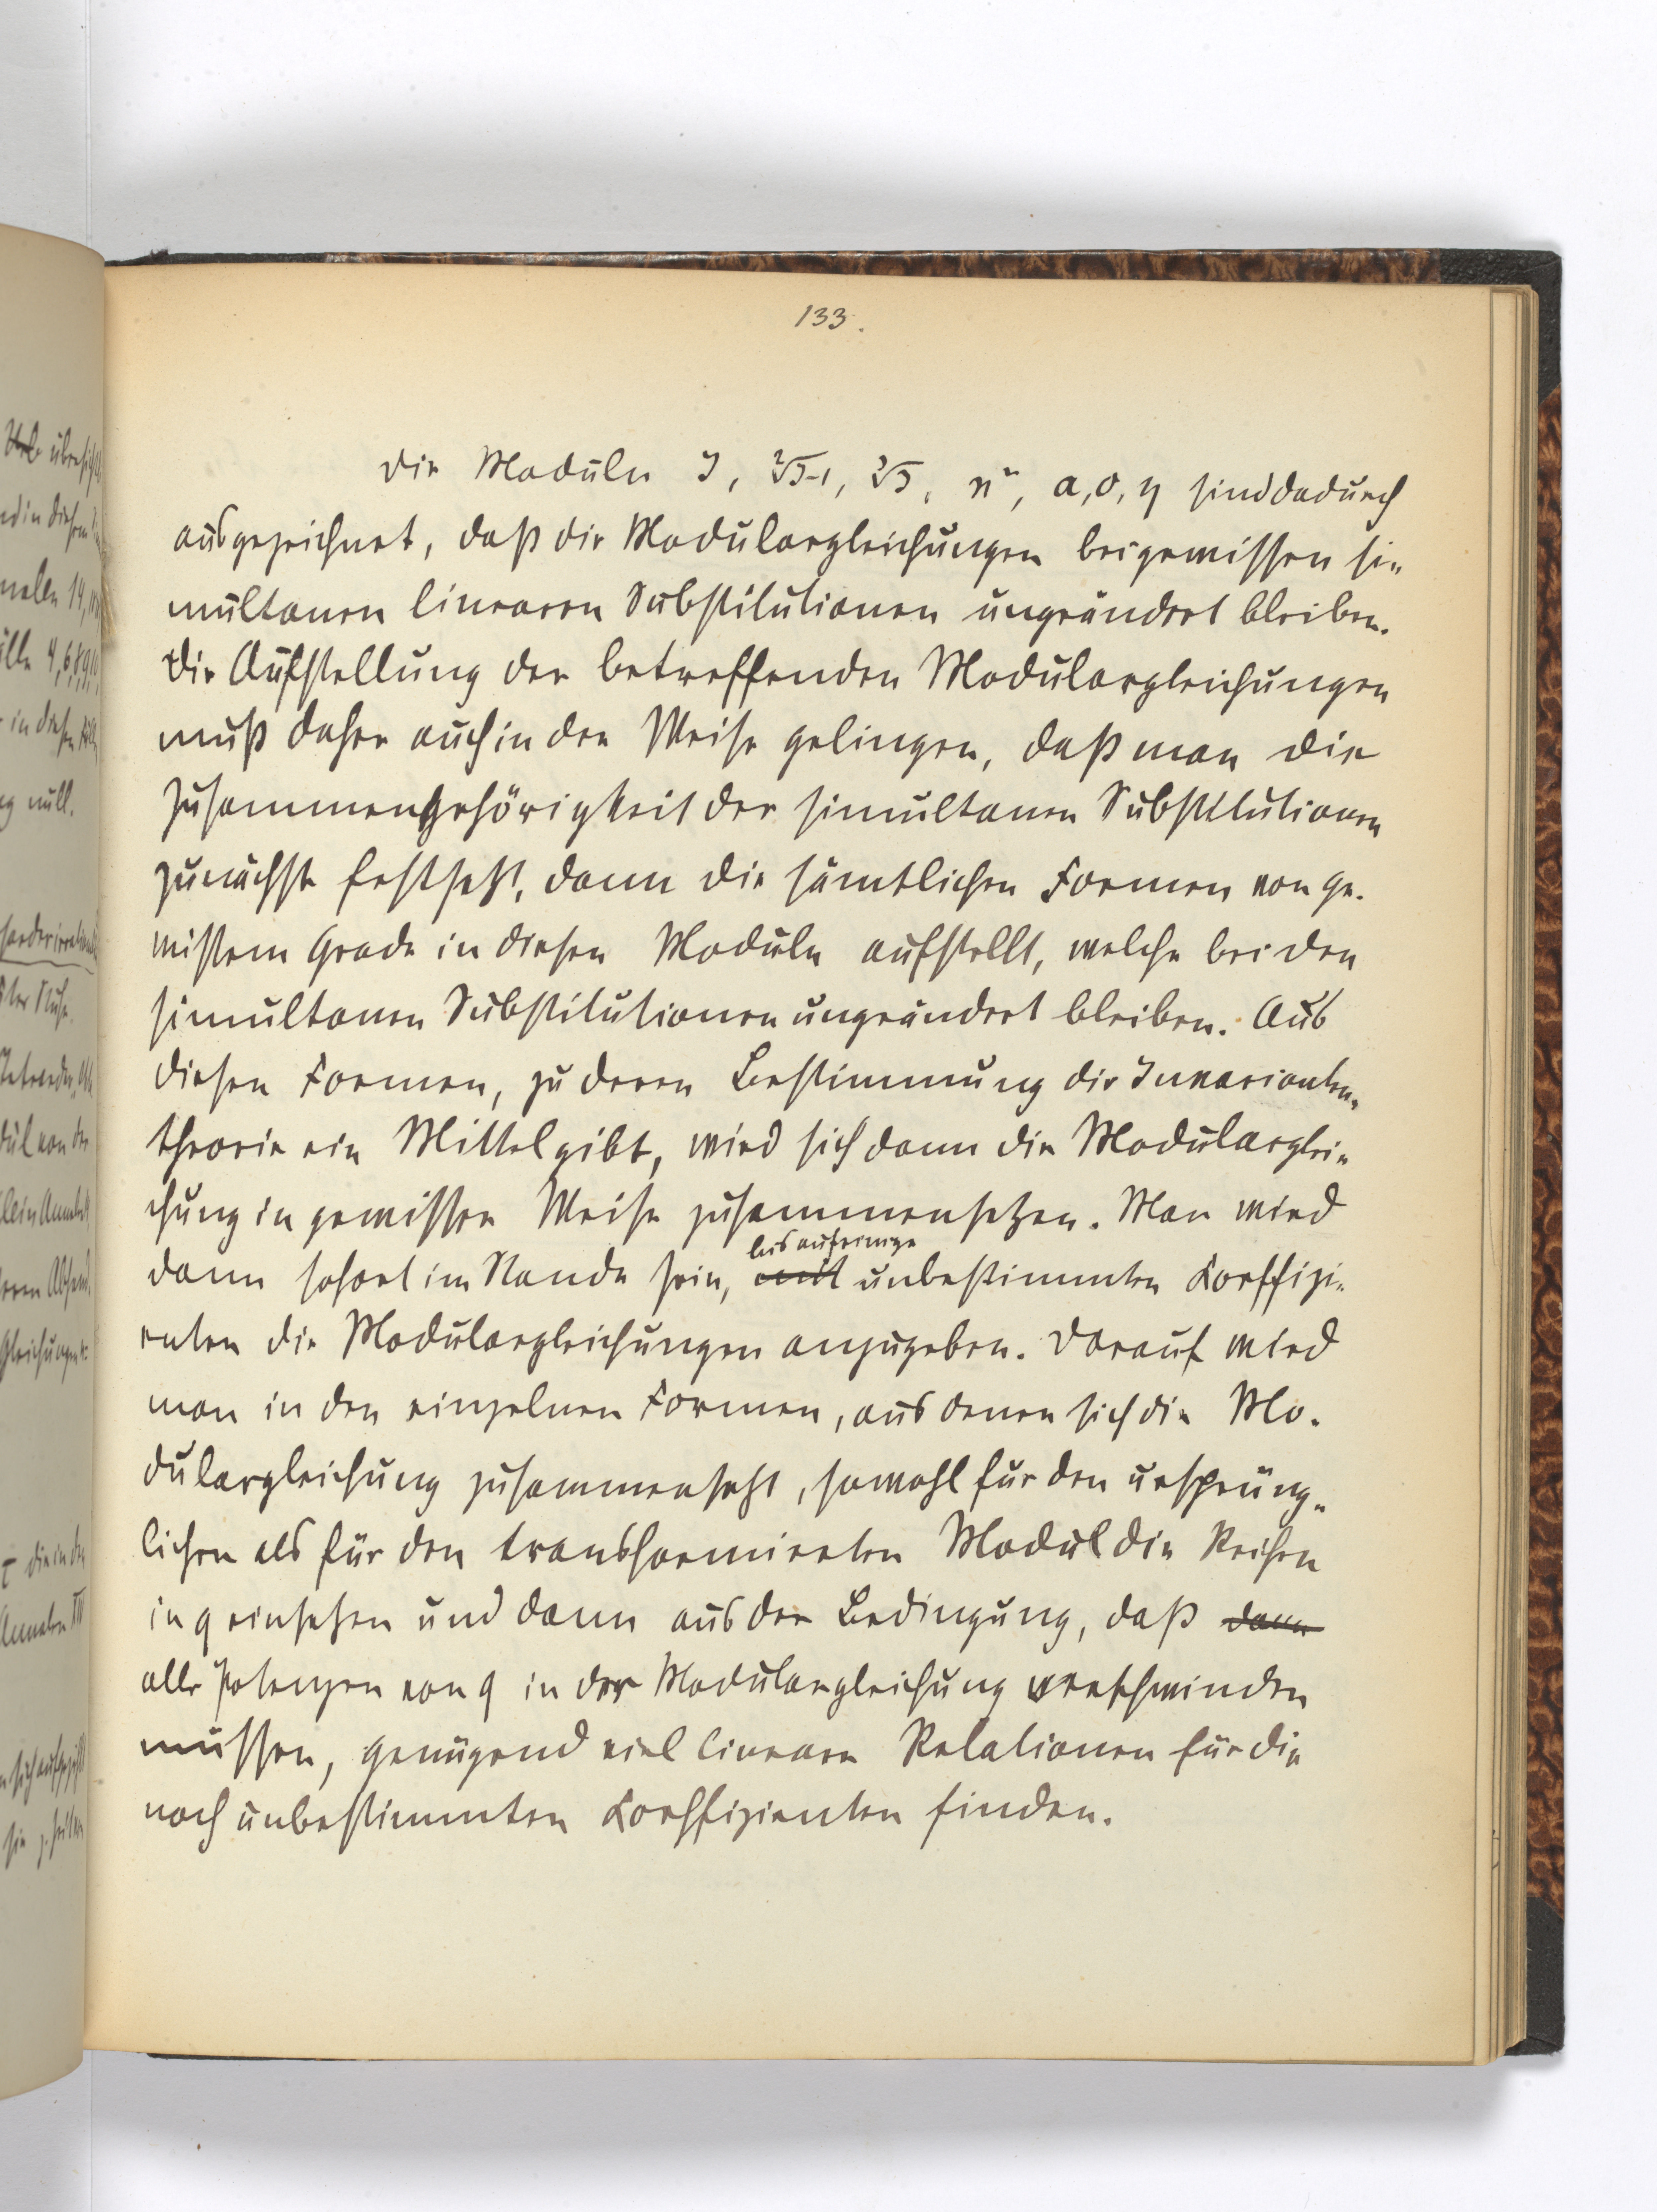 133.
Die Moduln J, ²√J-1, ³√J, ϰ², a, o, η sind dadurch
ausgezeichnet, daß die Modulargleichungen bei gewissen si-
multanen linearen Substitutionen ungeändert bleiben.
Die Aufstellung der betreffenden Modulargleichungen
muß daher auch in der Weise gelingen, daß man die
Zusammengehörigkeit der simultanen Substitutionen
zunächst festsetzt, dann die sämtlichen Formen von ge-
wissem Grade in diesen Moduln aufstellt, welche bei den
simultanen Substitutionen ungeändert bleiben. Aus
diesen Formen, zu deren Bestimmung die Invarianten-
theorie ein Mittel gibt, wird sich dann die Modularglei-
chung in gewisser Weise zusammensetzen. Man wird
bis auf einige
dann sofort im Stande sein, mit unbestimmten Coeffizi-
enten die Modulargleichungen anzugeben. Darauf wird
man in den einzelnen Formen, aus denen sich die Mo-
dulargleichung zusammensetzt, sowohl für den ursprüng-
lichen als für den transformierten Modul die Reihen
in q einsetzen und dann aus der Bedingung, daß dann
alle Potenzen von q in der Modulargleichung verschwinden
müssen, genügend viel lineare Relationen für die
noch unbestimmten Coeffizienten finden.